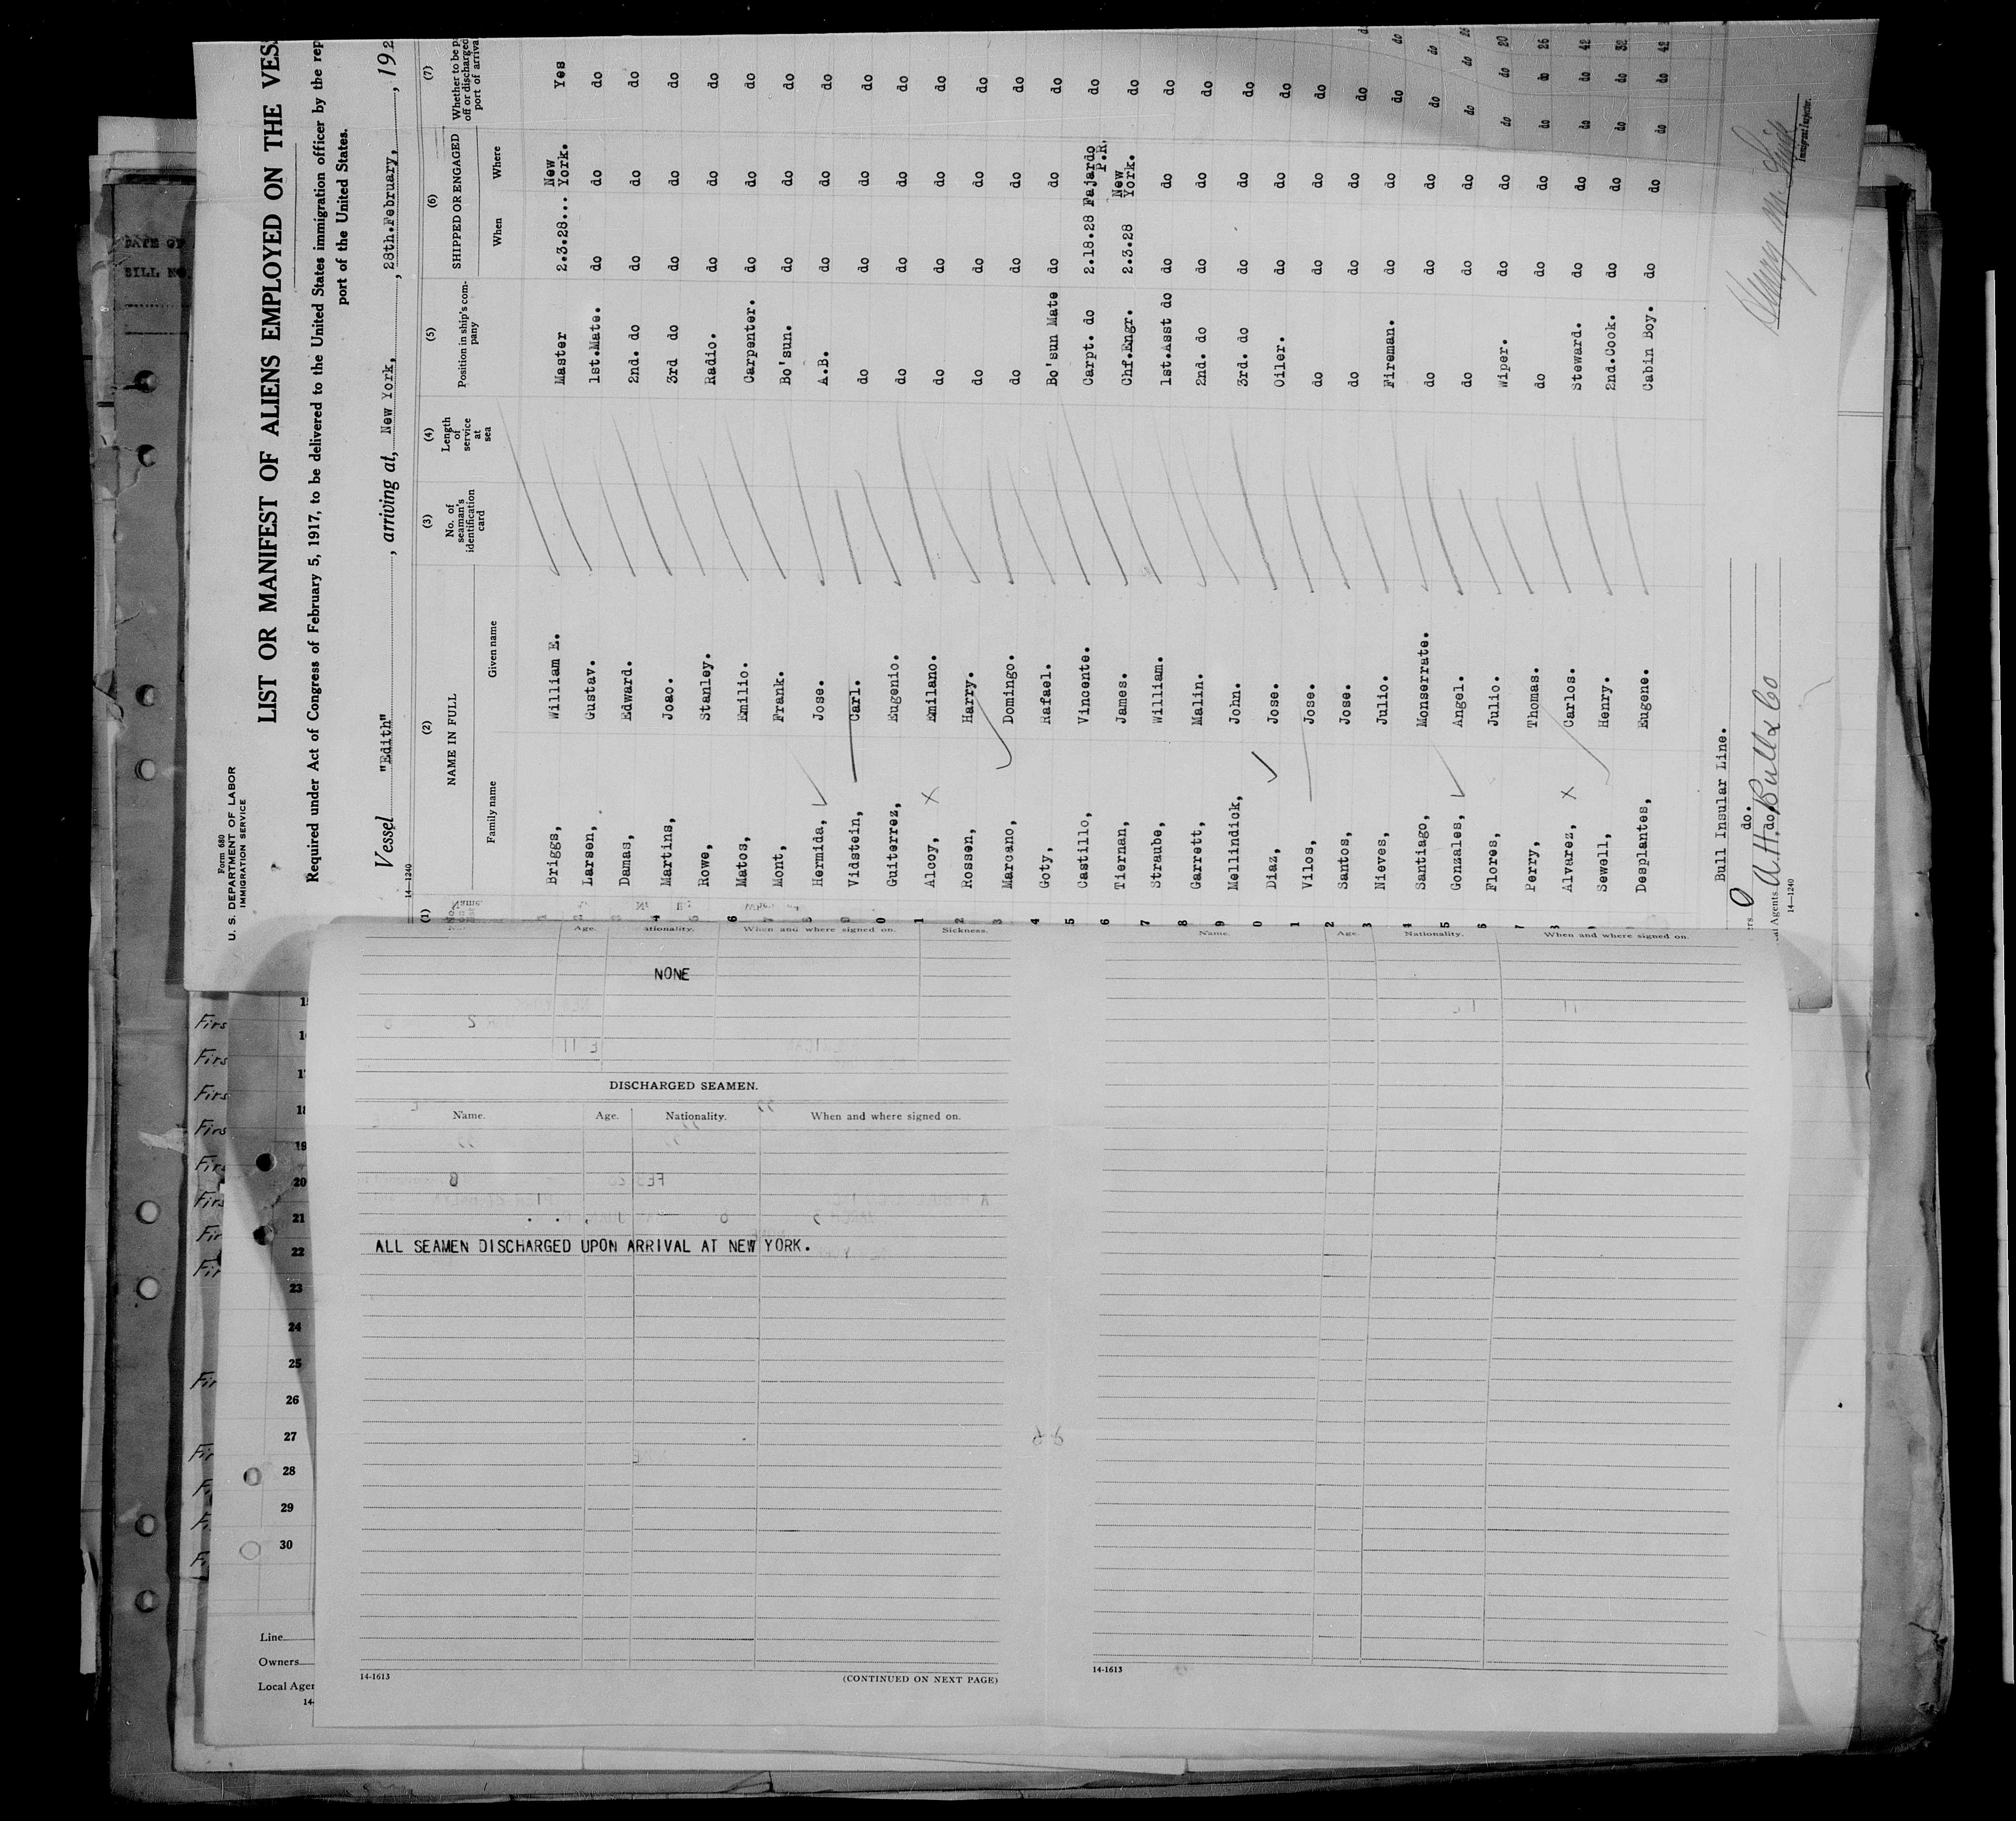 Form 680
U. S. DEPARTMENT OF LABOR
IMMIGRATION SERVICE
LIST OR MANIFEST OF ALIENS EMPLOYED ON THE VES
Required under Act of Congress of February 5, 1917, to be delivered to the United States immigration officer by the rep
port of the United States.
Vessel "Edith", arriving at, New York, 28th.February, 192
14—1240
(1) (2) (3) (4) (5) (6) (7)
NAME IN FULL No. of seaman's identification card Length of service at sea Position in ship's company SHIPPED OR ENGAGED Whether to be p off or discharged port of arrival
Family name Given name When Where
Briggs, William E. Master 2.3.28... New York. Yes
Larsen, Gustav. 1st.Mate. do do do
Damas, Edward. 2nd. do do do do
4 Martins, Joao. 3rd do do do do
5 Rowe, Stanley. Radio. do do do
6 Matos, Emilio. Carpenter. do do do
7 Mont, Frank. Bo'sun. do do do
8 Hermida, Jose. A.B. do do do
9 Vidstein, Carl. do do do do
0 Guiterrez, Eugenio. do do do do
1 Alcoy, X Emilano. do do do do
2 Rossen, Harry. do do do do
3 Marcano, Domingo. do do do do
4 Goty, Rafael. Bo'sun Mate do do do
5 Castillo, Vincente. Carpt. do 2.18.28 Fajardo P.R. do
6 Tiernan, James. Chf.Engr. 2.3.28 New York. do
7 Straube, William. 1st.Asst do do do do
8 Garrett, Malin. 2nd. do do do do
9 Mellindick, John. 3rd. do do do do
0 Diaz, Jose. Oiler. do do do
1 Vilos, Jose. do do do do
2 Santos, Jose. do do do do
3 Nieves, Julio. Fireman. do do do
4 Santiago, Monserrate. do do do do
5 Gonzales, Angel. do do do do
6 Flores, Julio. Wiper. do do do do 20
7 Perry, Thomas. do do do do do 26
8 Alvarez, X Carlos. Steward. do do do do 42
Sewell, Henry. 2nd.Cook. do do do do 32
Desplantes, Eugene. Cabin Boy. do do do do 42
Bull Insular Line.
do.
al Agents A.H. Bull & Co
do
14—1240
Immigrant Inspector.
DATE OF
BILL NO
Age. ationality. When and where signed on. Sickness.
Name. Age. Nationality. When and where signed on.
NONE
DISCHARGED SEAMEN.
Name. Age. Nationality. When and where signed on.
ALL SEAMEN DISCHARGED UPON ARRIVAL AT NEW YORK.
14-1613
(CONTINUED ON NEXT PAGE)
14-1613
Firs
Firs
Firs
Firs
Firs
Firs
Fir
Fir
Fir
Fir
15
16
17
18
19
20
21
22
23
24
25
26
27
28
29
30
Line
Owners
Local Agen
14-